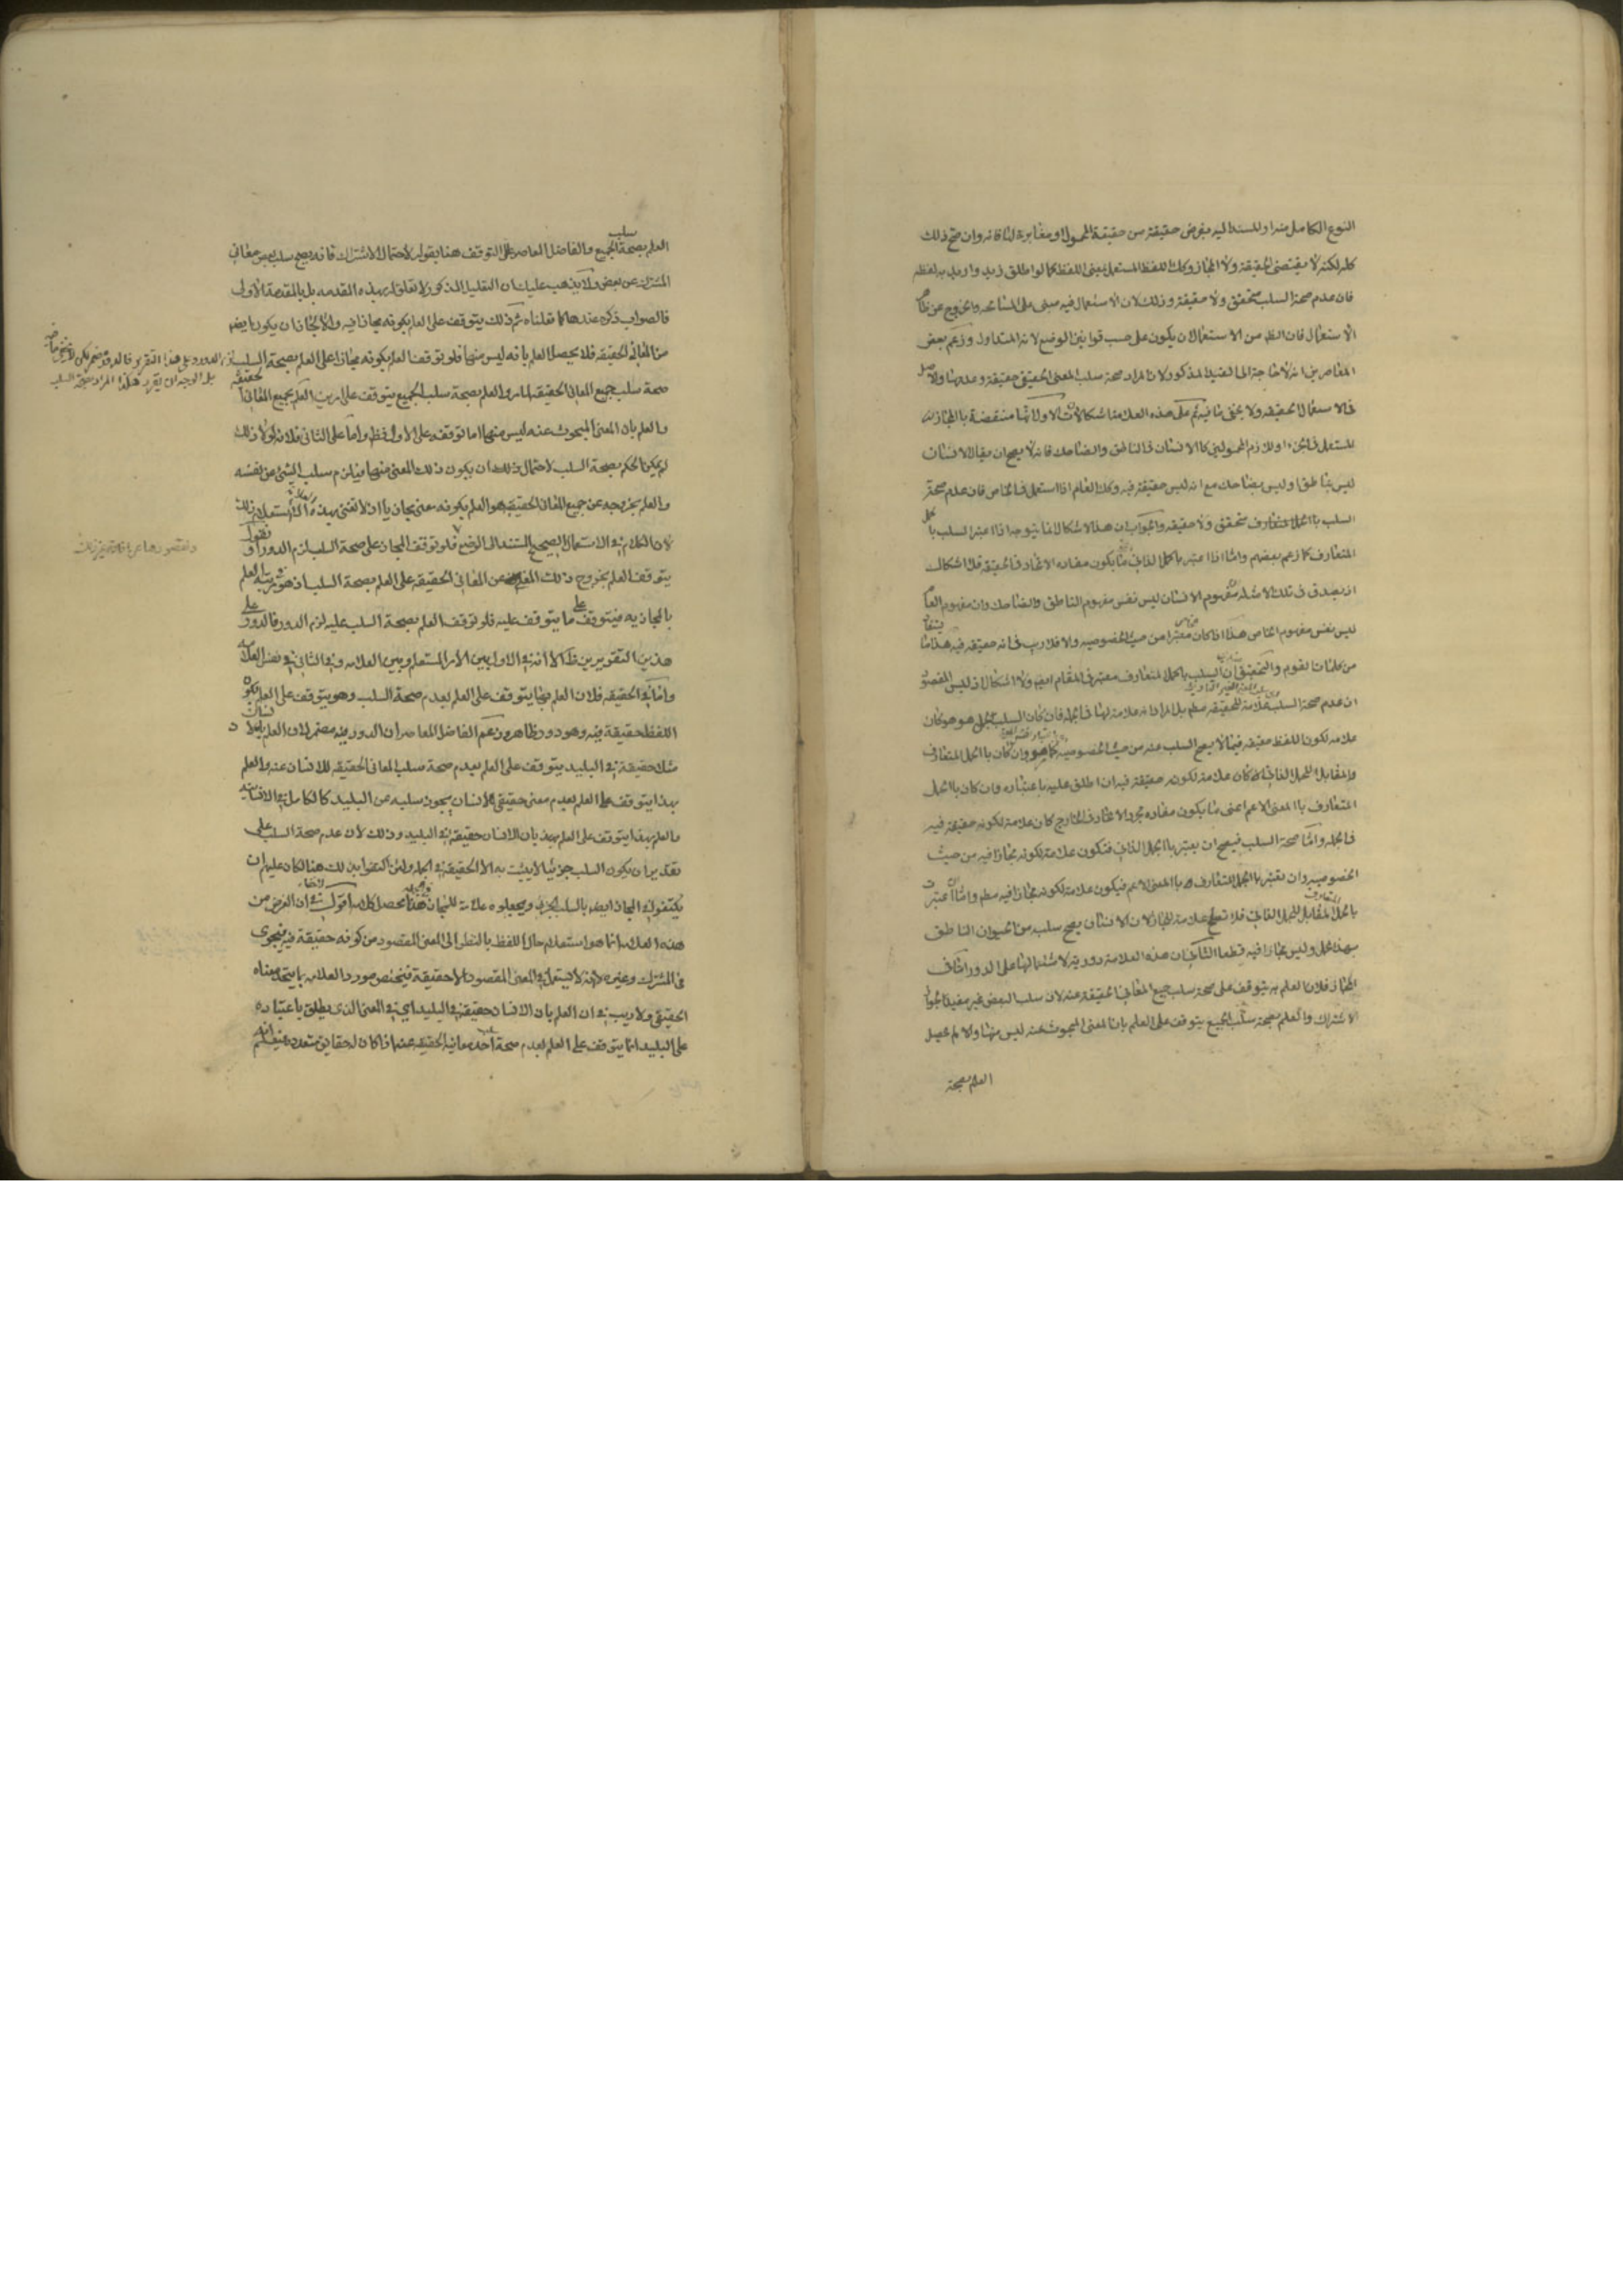 النوع الكامل منه او للمسند اليه بفرض حقيقة من حقيقة المحمول او مغايرة لنا فانه وان صح ذلك
كله لكنه لا يقتضى الحقيقة ولا المجاز وكك اللفظ المستعمل بمعنى اللفظ كما لو اطلق زيد واريد به لفظه
فان عدم صحة السلب متحقق ولا حقيقة وذلك لان الاستعمال فيه مبنى على المشابهة والخروج عن
الاستعمال فان الظ من الاستعمال ان يكون على حسب قوانين الوضع لانه المتداول وزعم بعض
المعاصرين انه لا حاجة الى القيد المذكور لان المراد صحة سلب المعنى الحقيقى حقيقة وعدمها والاصل
فى الاستعمال الحقيقة ولا يخفى ما فيه ثم على هذه العلامة اشكالات الاول انها منتقضة بالمجاز
المستعمل فى الجزء او اللازم المحمولين كالانسان فى الناطق والضاحك فانه لا يصح ان يقال الانسان
ليس بناطق او ليس بضاحك مع انه ليس حقيقة فيه وكك العام اذا استعمل فى الخاص فان عدم صحة
السلب بالحمل المتعارف متحقق ولا حقيقة والجواب ان هذا الاشكال انما يتوجه اذا اعتبر السلب بالحمل
المتعارف كما زعم بعضهم واما اذا اعتبر بالحمل الذاتى مما يكون مفاده الاتحاد فى الحقيقة فلا اشكال
اذ يصدق فى تلك الامثلة ان مفهوم الانسان ليس نفس مفهوم الناطق والضاحك وان مفهوم العام
ليس نفس مفهوم الخاص هذا اذا كان معتبرا من حيث الخصوصيه والا فلا ريب فى انه حقيقة فيه هذا ما يستفاد
من كلمات القوم والتحقيق ان السلب بالحمل المتعارف معتبر فى المقام ايضا ولا اشكال اذ ليس المقصود
ان عدم صحة السلب علامة للحقيقة مطلقا بل المراد انه علامة لها فى الجملة فان كان السلب بحمل هو هو كان
علامة لكون اللفظ حقيقة فيما لا يصح السلب عنه من حيث الخصوصيه كما هو وان كان بالحمل المتعارف
والمقابل للحمل الذاتى كان علامة لكونه حقيقة فيه ان اطلق عليه باعتباره وان كان بالحمل
المتعارف بالمعنى الاعم اعنى ما يكون مفاده مجرد الاتحاد فى الخارج كان علامة لكونه حقيقة فيه
فى الجملة واما صحة السلب فيصح ان يعتبر بالحمل الذاتى فتكون علامة لكونه مجازا فيه من حيث
الخصوصيه وان تعتبر بالحمل المتعارف بالمعنى الاعم فيكون علامة لكونه مجازا فيه مطلقا واما ان اعتبرت
بالحمل المتعارف المقابل للحمل الذاتى فلا تصلح علامة للمجاز لان الانسان يصح سلبه من الحيوان الناطق
بهذا الحمل وليس مجازا فيه قطعا الثانى ان هذه العلامة دورية لاشتمالها على الدور اما فى
المجاز فلان العلم به يتوقف على صحة سلب جميع المعانى الحقيقة عنه لان سلب البعض غير مفيد لجواز
الاشتراك والعلم بصحة سلب الجميع يتوقف على العلم بان المعنى المبحوث عنه ليس منها والا لم يحصل
العلم بصحة
العلم بصحة سلب الجميع والفاضل المعاصر علل التوقف هنا بقوله لاحتمال الاشتراك فانه يصح سلب بعض معانى
المشترك عن بعض ولا يذهب عليك ان التعليل المذكور لا تعلق له بهذه المقدمه بل بالمقدمة الاولى
فالصواب ذكره عندها كما فعلناه ثم ذلك يتوقف على العلم بكونه مجازا فيه والا لجاز ان يكون ايضا
من المعانى الحقيقه فلا يحصل العلم بانه ليس منها فلو توقف العلم بكونه مجازا على العلم بصحة السلب لزم الدور
صحة سلب جميع المعانى الحقيقه والعلم بصحة سلب الجميع يتوقف على امرين العلم بجميع المعانى الحقيقة
والعلم بان المعنى المبحوث عنه ليس منها اما توقفه على الاول فظ واما على الثانى فلانه لولا ذلك
لم يكن الحكم بصحة السلب لاحتمال ان يكون ذلك المعنى منها فيلزم سلب الشئ عن نفسه
والعلم بخروجه عن جميع المعانى الحقيقية هو العلم بكونه معنى مجازيا اذ لا نعنى بهذه العلامة الا استعلام ذلك
لان الكلام فى الاستعمال الصحيح المستند الى الوضع فلو توقف المجاز على صحة السلب لزم الدور او نقول
يتوقف العلم بخروج ذلك المعنى عن المعانى الحقيقه على العلم بصحة السلب اذ هو مرتبة العلم
بالمجازيه فيتوقف على ما يتوقف عليه فلو توقف العلم بصحة السلب عليه لزم الدور فالدور على
هذين التقويرين ظ الا انه فى الاول بين الامر المستعلم وبين العلامه وفى الثانى فى نفس العلامة
واما فى الحقيقه فلان العلم بها يتوقف على العلم بعدم صحة السلب وهو يتوقف على العلم بكون
اللفظ حقيقة فيه وهو دور ظاهر وزعم الفاضل المعاصر ان الدور فيه مضمر لان العلم بكون الانسان
مثلا حقيقة فى البليد يتوقف على العلم بعدم صحة سلب المعانى الحقيقه للانسان عنه والعلم
بهذا يتوقف على العلم بعدم معنى حقيقى للانسان يجوز سلبه عن البليد كالكامل فى الانسانيه
والعلم بهذا يتوقف على العلم بان الانسان حقيقة فى البليد وذلك لان عدم صحة السلب على
تقدير ان يكون السلب جزئيا لا يثبت به الا الحقيقة فى الجملة ولئن اكتفوا بذلك هنا لكان عليهم ان
يكتفوا فى المجاز ايضا بالسلب الجزئى ويجعلوه علامة للمجاز فى الجملة هذا محصل كلامه اقول لا خفاء فى ان الغرض من
هذه العلامه انما هو استعلام حال اللفظ بالنظر الى المعنى المقصود من كونه حقيقة فيه فيجرى
فى المشترك وغيره لا انه لا يستعمل فى المعنى المقصود الا حقيقة فيختص مورد العلامه بما يتحد معناه
الحقيقى ولا ريب فى ان العلم بان الانسان حقيقة فى البليد اى فى المعنى الذى يطلق باعتباره
على البليد انما يتوقف على العلم بعدم صحة سلب احد معانيه الحقيقيه عنه اذا كان له حقايق متعدده
بل الوجه ان يقرر هكذا المراد صحة السلب